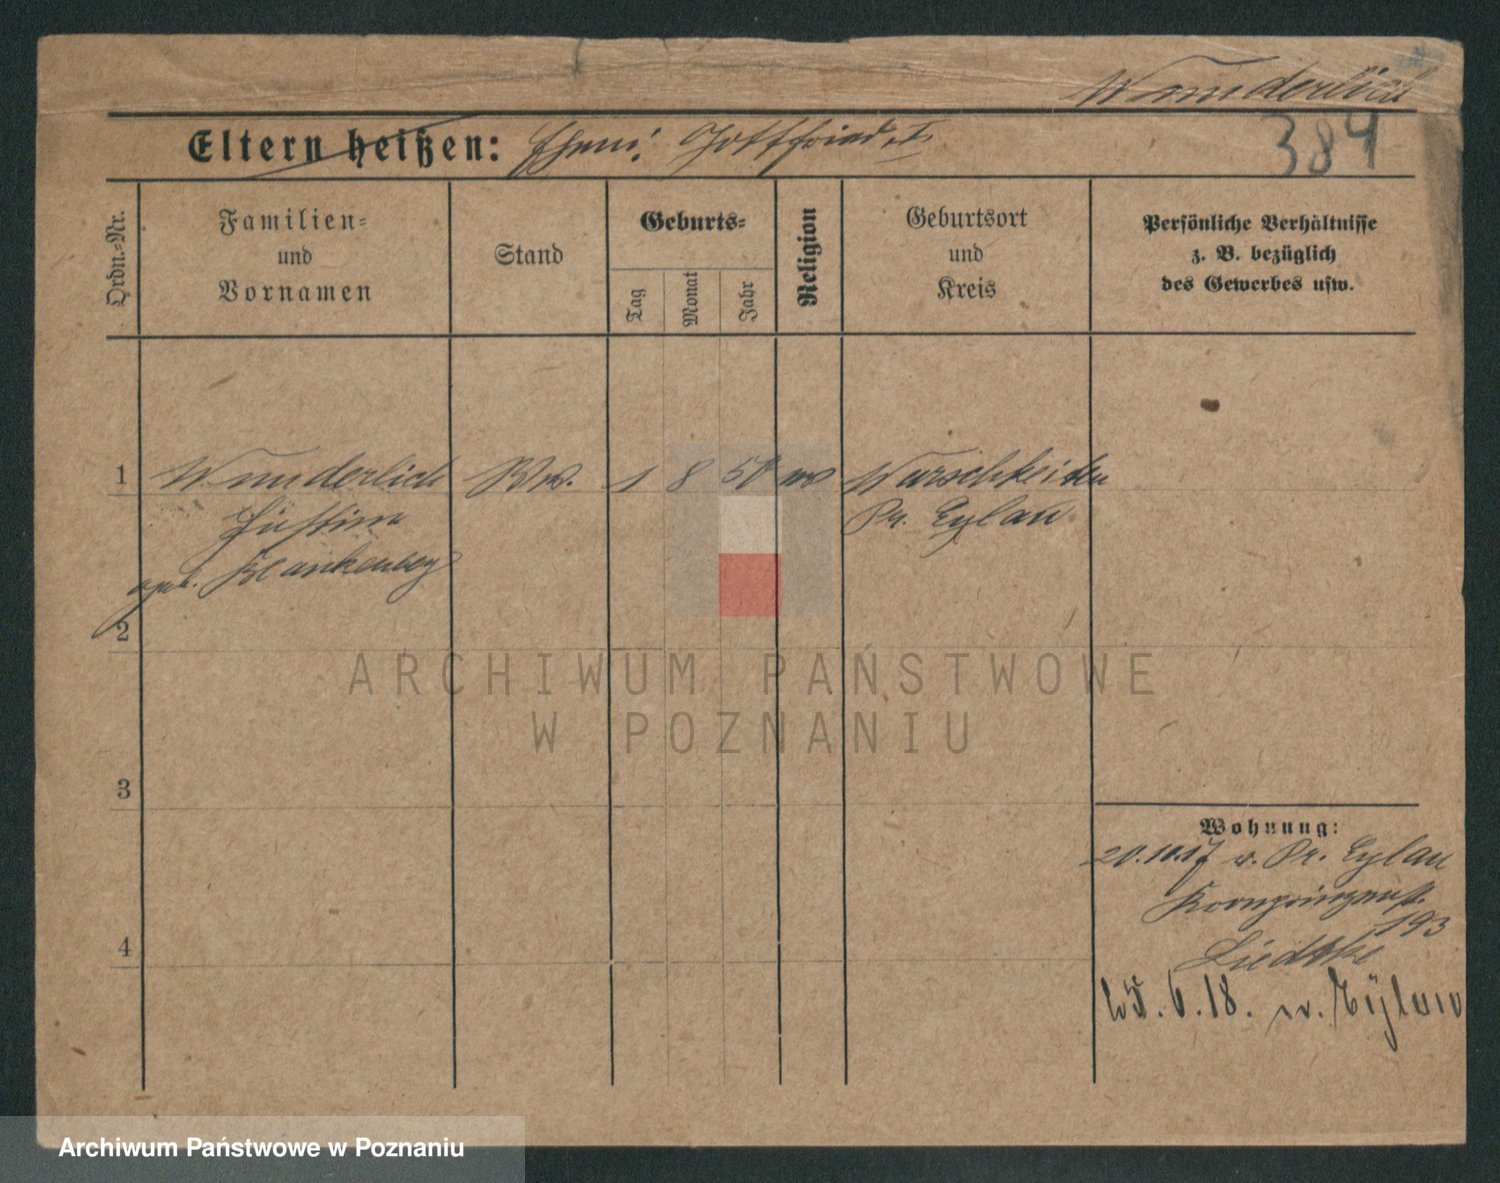 Wunderlich
384
Eltern heißen: Ehem: Gottfried †
Ordn.-Nr.
Familien-
und
Vornamen
Stand
Geburts-
Tag
Monat
Jahr
Religion
Geburtsort
und
Kreis
Persönliche Verhältnisse
z. B. bezüglich
des Gewerbes usw.
1 Wunderlich Ww. 1 8 50 Warschkeiten
Justine Pr. Eylau
geb. Blankenberg
2
ARCHIWUM PAŃSTWOWE
W POZNANIU
3
Wohnung:
20.10.17 v. Pr. Eylau
Kronprinzenst.
193
Liedtke
4
6.18. n. Eylau
Archiwum Państwowe w Poznaniu